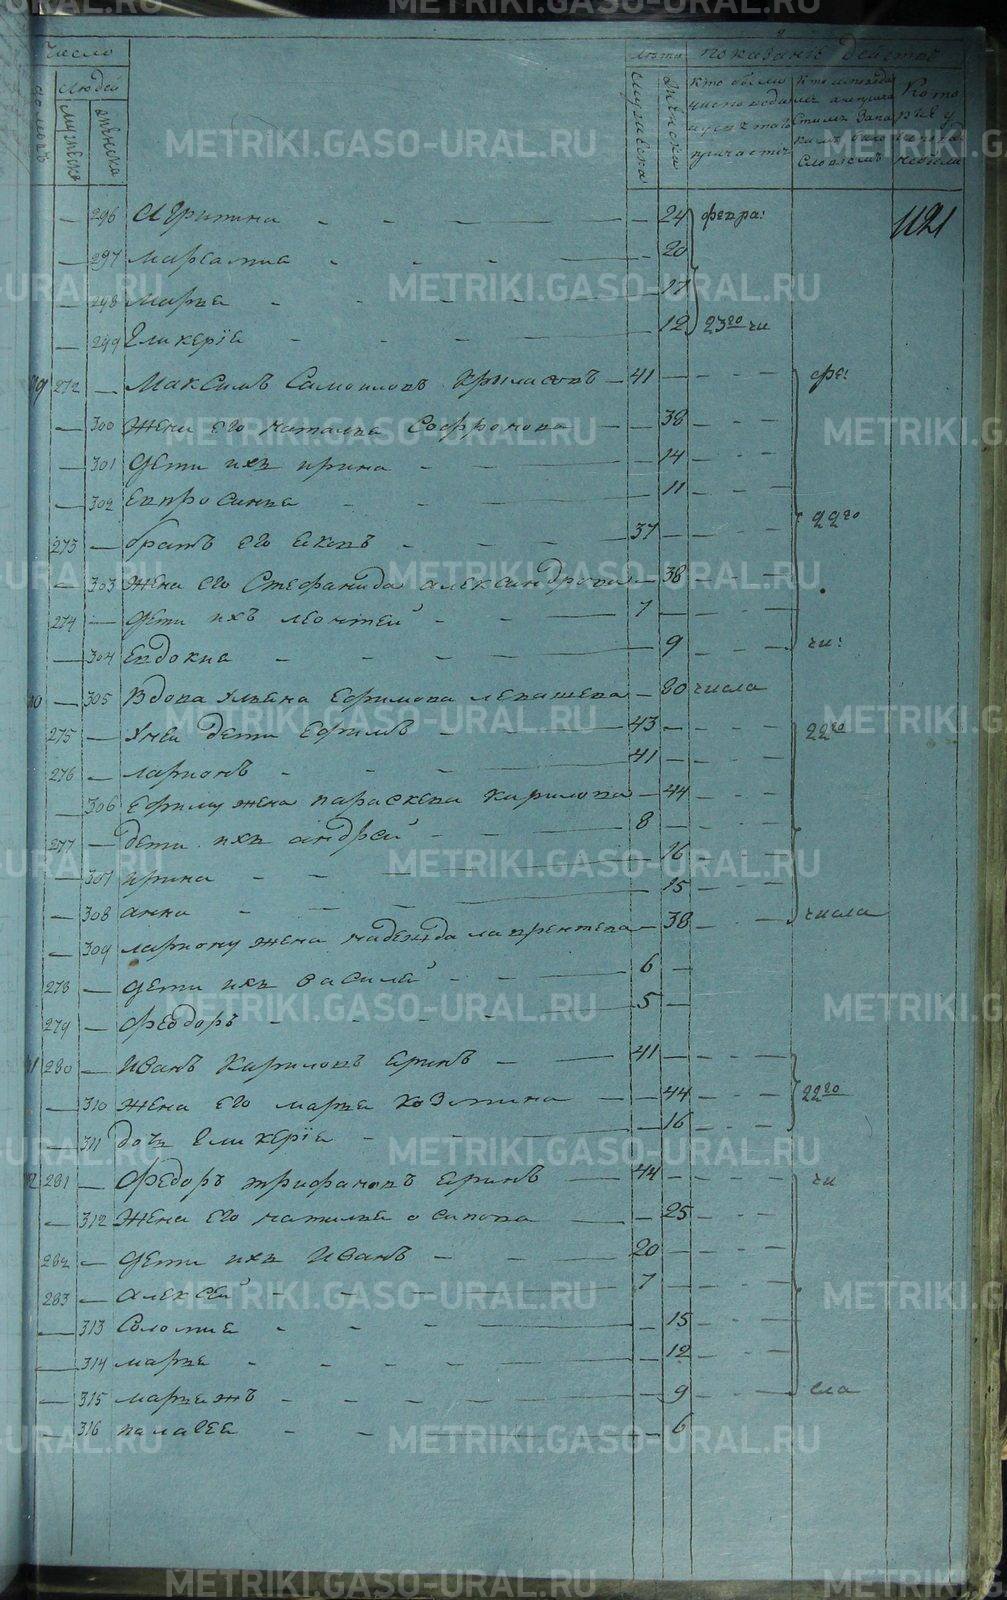 Число Лѣта показание действ
домовъ людей мужеска женска
мужеска женска
Кто были у исповеди и св: таго причастия
Которые у не были
1121
— 296 Агрипина — 24 февра:
— 297 марѳамиа — 20
— 298 марья — 17
— 299 Гликерїа — 12 23го чи
272 — Максимъ Самоиловъ Крыласовъ 41 — фе:
— 300 жена его наталья Софронова — 38
— 301 дети ихъ ирина — 14
— 302 Евпросинья — 11
273 — братъ его иковъ 37 — 22го
— 303 жена его Стефанида александрова — 38
274 — дети ихъ леонтей 7 —
— 304 Евдокиа — 9 чи:
— 305 Вдова Ульяна Ефимова левашева — 80 числа
275 — У ней дети Ефимъ 43 — 22го
276 — ларионъ 41 —
— 306 Ефиму жена параскева Кирилова — 44
277 — дети ихъ андрей 8 —
— 307 ирина — 16
— 308 анна — 15
— 309 лариону жена надежда лаврентева — 38 числа
278 — дети ихъ василей 6 —
279 — феодоръ 5 —
280 — Иванъ Кириловъ Еринъ 41 —
— 310 жена его марья козмина — 44 22го
— 311 дочь Гликерїа — 16
281 — Федоръ трифановъ Еринъ 44 — чи
— 312 жена его наталья осипова — 25
282 — дети ихъ Иванъ 20 —
283 — алексей 7 —
— 313 Соломиа — 15
— 314 марья — 12
— 315 марья жъ — 9 сла
— 316 палагеа — 6
METRIKI.GASO-URAL.RU